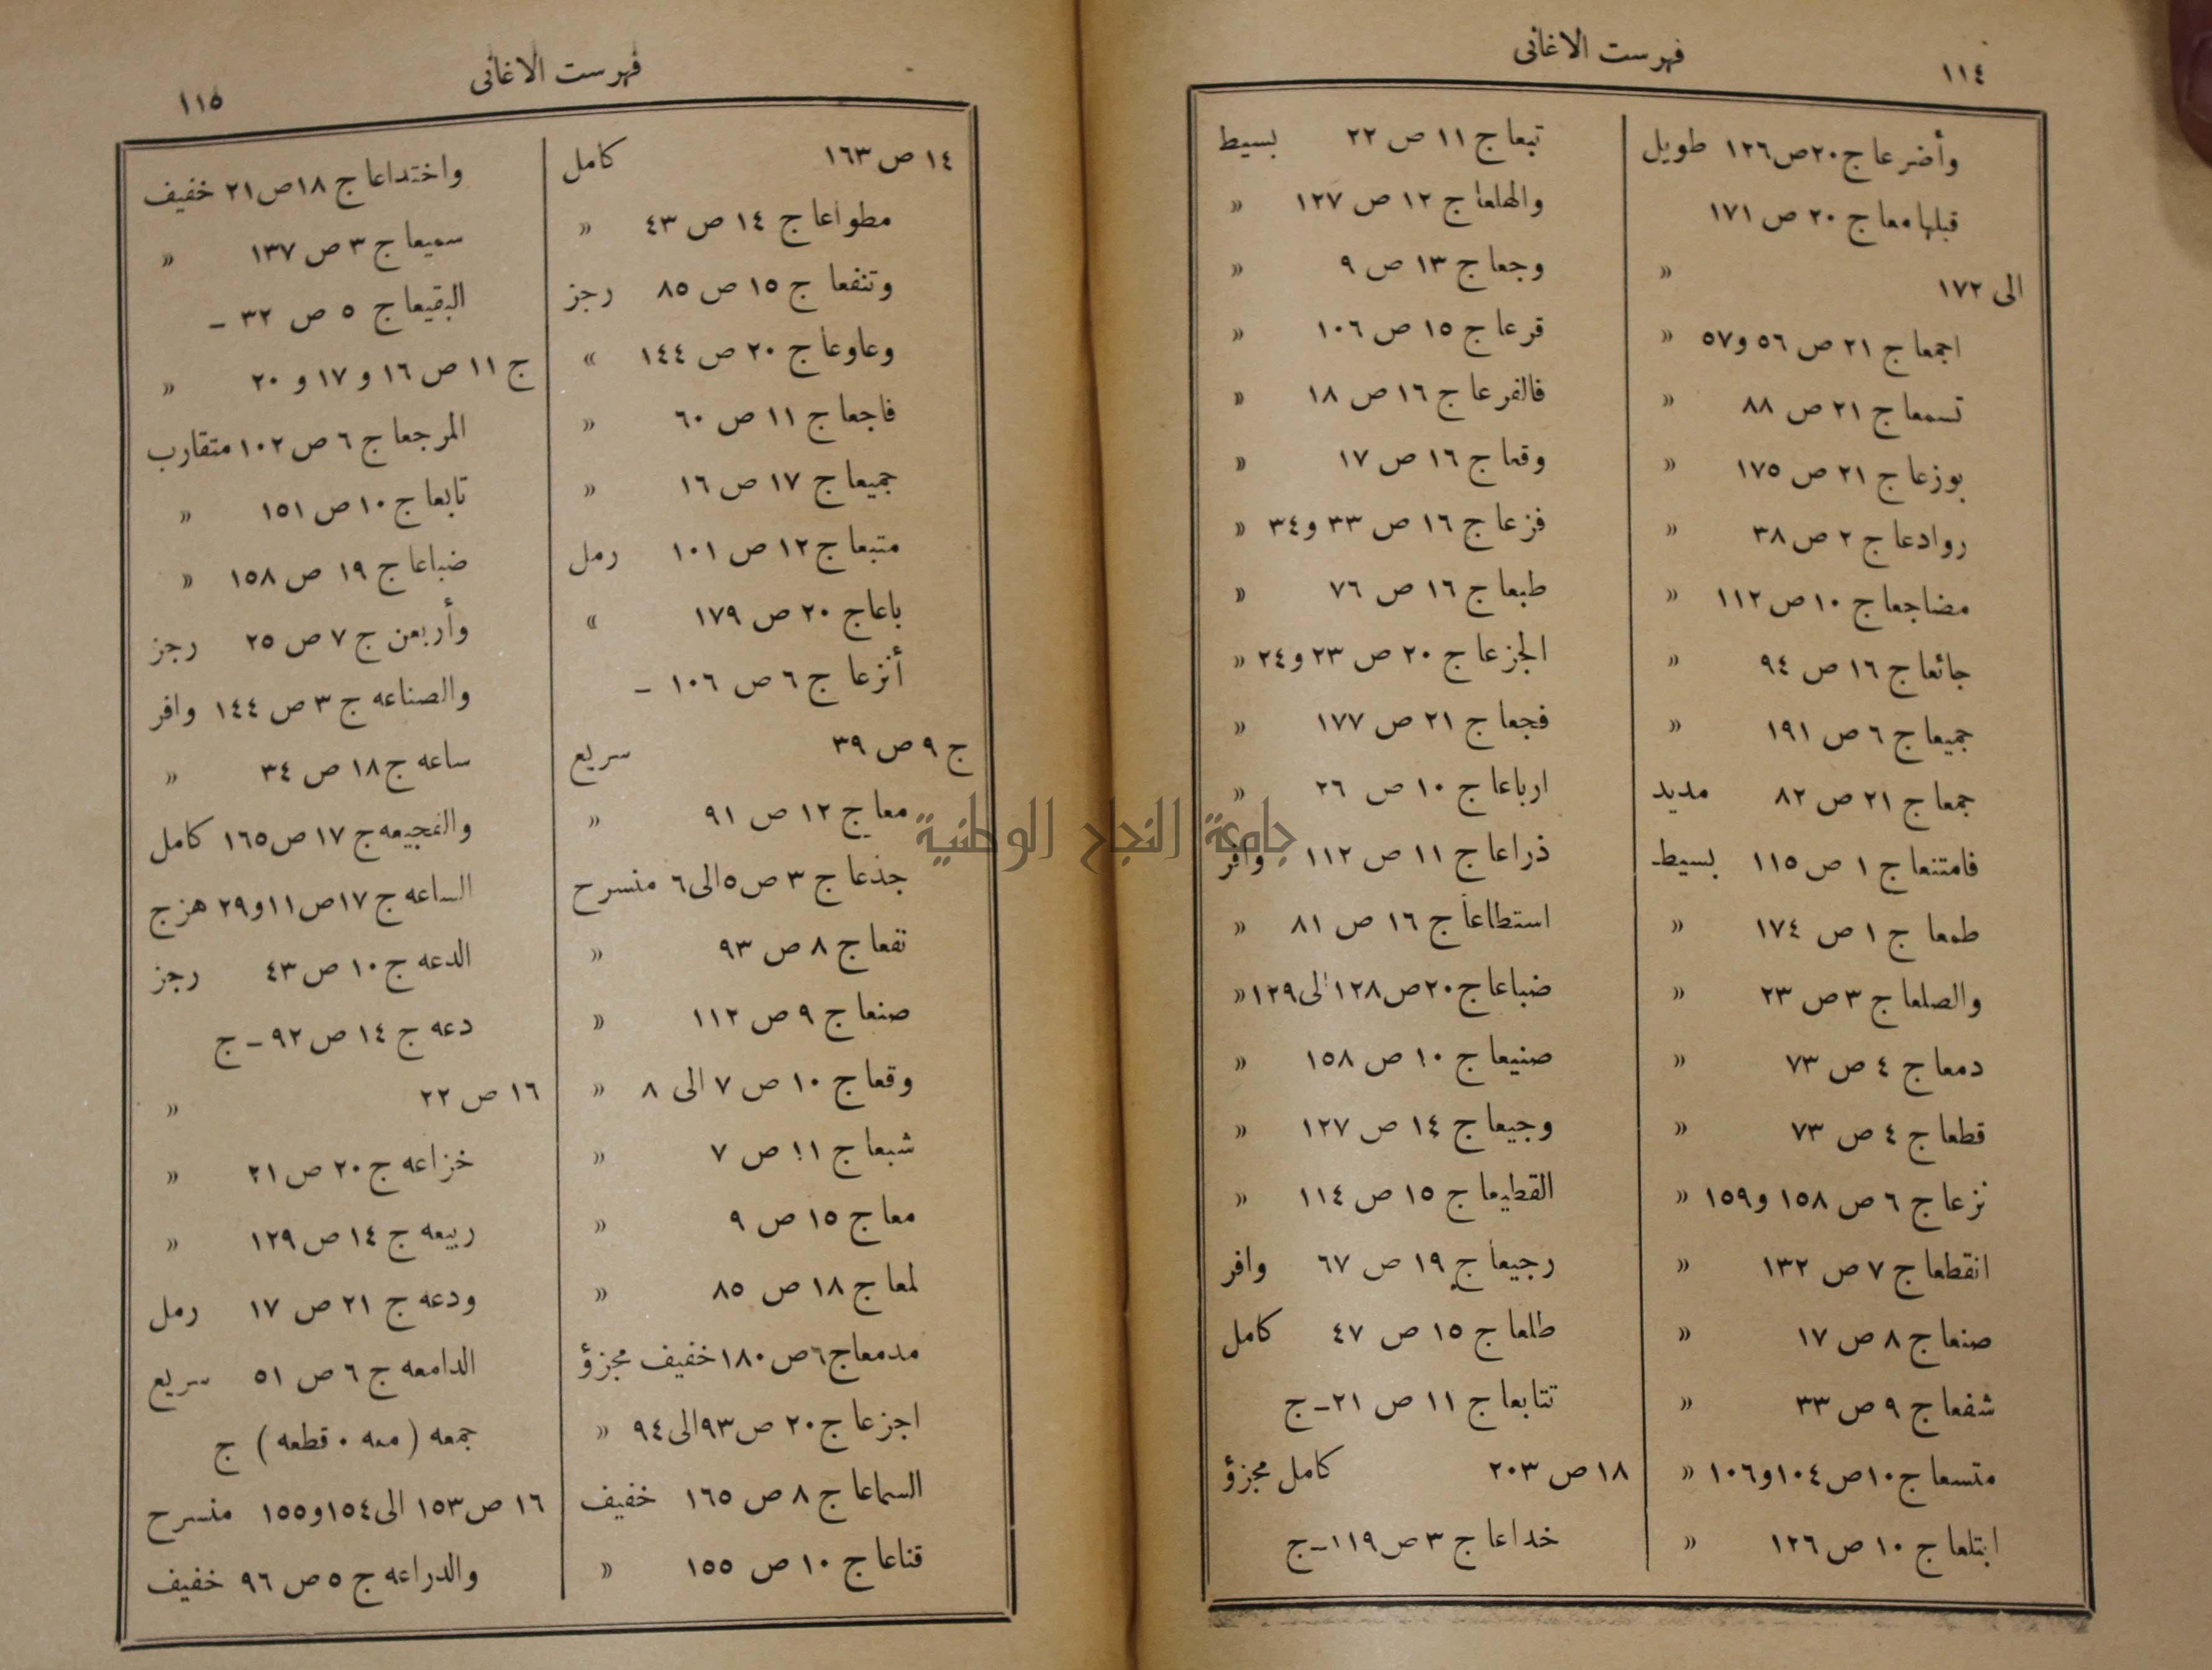 ١١٤
فهرست الاغانى
وأضرعا ج ٢٠ ص ١٢٦ طويل
قبلها معا ج ٢٠ ص ١٧١
الى ١٧٢ »
اجمعا ج ٢١ ص ٥٦ و ٥٧ »
تسمعا ج ٢١ ص ٨٨ »
بوزعا ج ٢١ ص ١٧٥ »
روادعا ج ٢ ص ٣٨ »
مضاجعا ج ١٠ ص ١١٢ »
جائعا ج ١٦ ص ٩٤ »
جميعا ج ٦ ص ١٩١ »
جمعا ج ٢١ ص ٨٢ مديد
فامتنعا ج ١ ص ١١٥ بسيط
طمعا ج ١ ص ١٧٤ »
والصلعا ج ٣ ص ٢٣ »
دمعا ج ٤ ص ٧٣ »
قطعا ج ٤ ص ٧٣ »
نزعا ج ٦ ص ١٥٨ و ١٥٩ »
انقطعا ج ٧ ص ١٣٢ »
صنعا ج ٨ ص ١٧ »
شفعا ج ٩ ص ٣٣ »
متسعا ج ١٠ ص ١٠٤ و ١٠٦ »
ابتلعا ج ١٠ ص ١٢٦ »
تبعا ج ١١ ص ٢٢ بسيط
والهلعا ج ١٢ ص ١٢٧ »
وجعا ج ١٣ ص ٩ »
قرعا ج ١٥ ص ١٠٦ »
فالفرعا ج ١٦ ص ١٨ »
وقعا ج ١٦ ص ١٧ »
فزعا ج ١٦ ص ٣٣ و ٣٤ »
طبعا ج ١٦ ص ٧٦ »
الجزعا ج ٢٠ ص ٢٣ و ٢٤ »
فجعا ج ٢١ ص ١٧٧ »
ارباعا ج ١٠ ص ٢٦ »
ذراعا ج ١١ ص ١١٢ وافر
استطاعا ج ١٦ ص ٨١ »
ضباعا ج ٢٠ ص ١٢٨ الى ١٢٩ »
صنيعا ج ١٠ ص ١٥٨ »
وجيعا ج ١٤ ص ١٢٧ »
القطيعا ج ١٥ ص ١١٤ »
رجيعا ج ١٩ ص ٦٧ وافر
طلعا ج ١٥ ص ٤٧ كامل
تتابعا ج ١١ ص ٢١ - ج
١٨ ص ٢٠٣ كامل مجزؤ
خداعا ج ٣ ص ١١٩ - ج
فهرست الاغانى
١١٥
١٤ ص ١٦٣ كامل
مطواعا ج ١٤ ص ٤٣ »
وتنفعا ج ١٥ ص ٨٥ رجز
وعاوعا ج ٢٠ ص ١٤٤ »
فاجعا ج ١١ ص ٦٠ »
جميعا ج ١٧ ص ١٦ »
متبعا ج ١٢ ص ١٠١ رمل
باعا ج ٢٠ ص ١٧٩ »
أنزعا ج ٦ ص ١٠٦ -
ج ٩ ص ٣٩ سريع
معا ج ١٢ ص ٩١ »
جذعا ج ٣ ص ٥ الى ٦ منسرح
نفعا ج ٨ ص ٩٣ »
صنعا ج ٩ ص ١١٢ »
وقعا ج ١٠ ص ٧ الى ٨ »
شبعا ج ١١ ص ٧ »
معا ج ١٥ ص ٩ »
لمعا ج ١٨ ص ٨٥ »
مدمعا ج ٦ ص ١٨٠ خفيف مجزؤ
اجزعا ج ٢٠ ص ٩٣ الى ٩٤ »
السماعا ج ٨ ص ١٦٥ خفيف
قناعا ج ١٠ ص ١٥٥ »
واختداعا ج ١٨ ص ٢١ خفيف
سميعا ج ٣ ص ١٣٧ »
البقيعا ج ٥ ص ٣٢ -
ج ١١ ص ١٦ و ١٧ و ٢٠ »
المرجعا ج ٦ ص ١٠٢ متقارب
تابعا ج ١٠ ص ١٥١ »
ضباعا ج ١٩ ص ١٥٨ »
وأربعن ج ٧ ص ٢٥ رجز
والصناعه ج ٣ ص ١٤٤ وافر
ساعه ج ١٨ ص ٣٤ »
والفجيعه ج ١٧ ص ١٦٥ كامل
الساعه ج ١٧ ص ١١ و ٢٩ هزج
الدعه ج ١٠ ص ٤٣ رجز
دعه ج ١٤ ص ٩٢ - ج
١٦ ص ٢٢ »
خزاعه ج ٢٠ ص ٢١ »
ربيعه ج ١٤ ص ١٢٩ »
ودعه ج ٢١ ص ١٧ رمل
الدامعه ج ٦ ص ٥١ سريع
جمعه ( معه . قطعه ) ج
١٦ ص ١٥٣ الى ١٥٤ و ١٥٥ منسرح
والدراعه ج ٥ ص ٩٦ خفيف
جامعة النجاح الوطنية